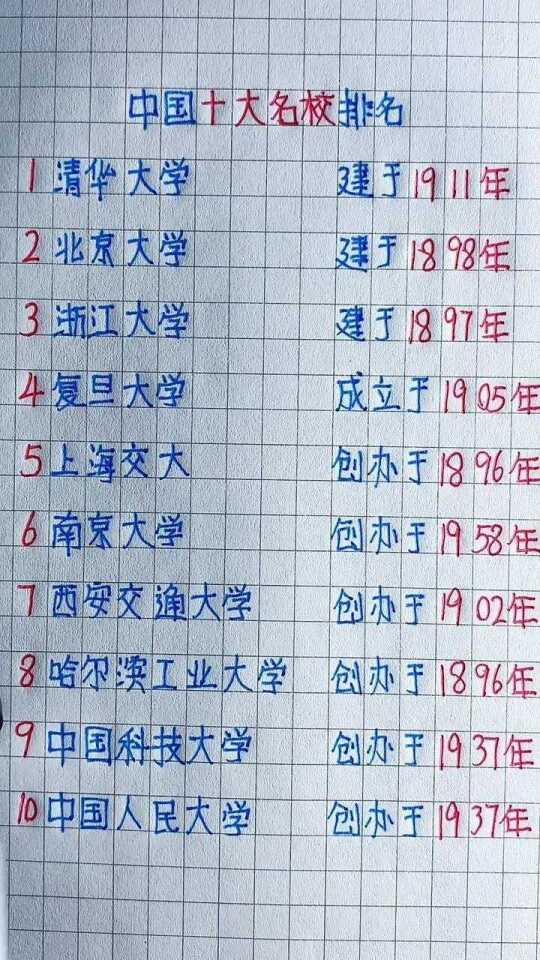 中国十大名校排名
1 清华大学 建于1911年
2 北京大学 建于1898年
3 浙江大学 建于1897年
4 复旦大学 成立于1905年
5 上海交大 创办于1896年
6 南京大学 创办于1958年
7 西安交通大学 创办于1902年
8 哈尔滨工业大学 创办于1896年
9 中国科技大学 创办于1937年
10 中国人民大学 创办于1937年